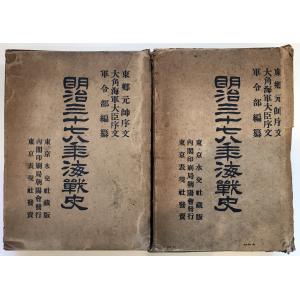 東郷元帥序文
大角海軍大臣序文
軍令部編纂
明治三十七八年海戰史
東京水交社藏版
内閣印刷局朝陽會發行
東京表現社發賣
東郷元帥序文
大角海軍大臣序文
軍令部編纂
明治三十七八年海戰史
東京水交社藏版
内閣印刷局朝陽會發行
東京表現社發賣